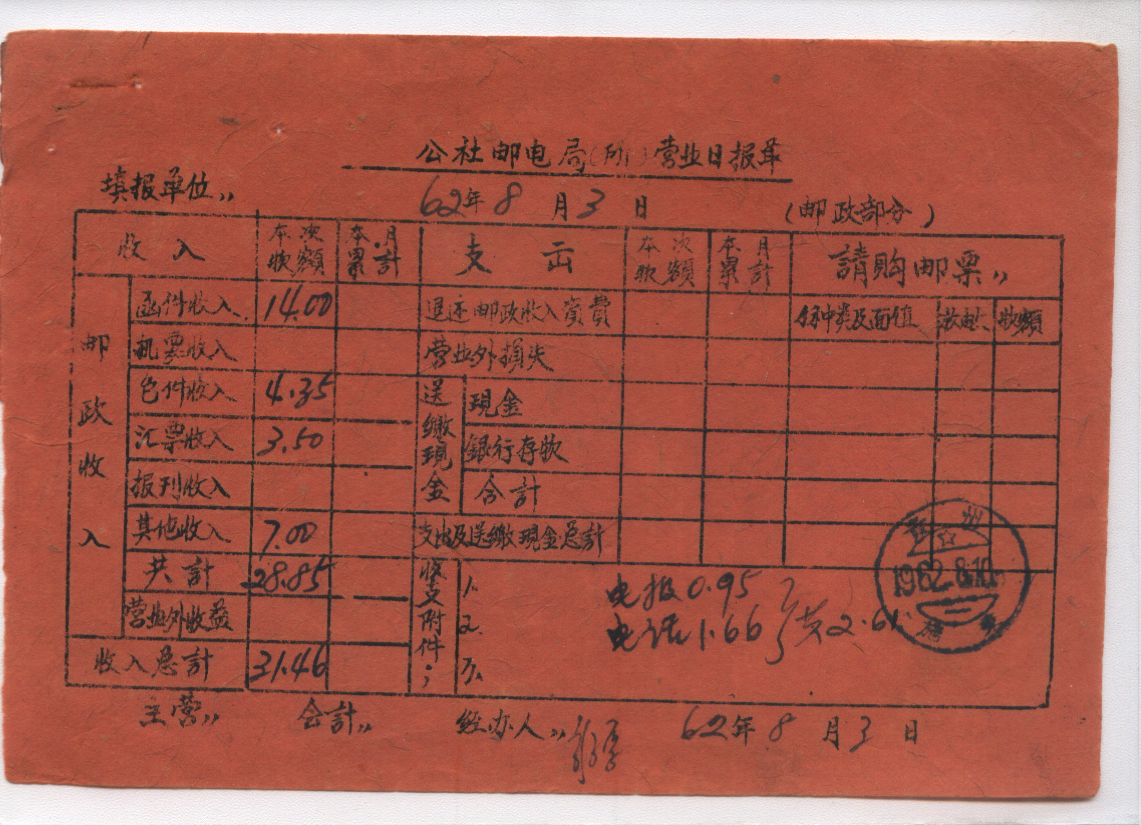 公社邮电局(所)营业日报单
填报单位,,
62年8月3日
(邮政部分)
收入 本次收额 本月累计 支出 本次款额 本月累计 請购邮票,,
邮政收入
函件收入 14.00 退还邮政收入资费 面值
机票收入 营业外損失
包件收入 4.35 送缴現金 現金
汇票收入 3.50 銀行存款
报刊收入 合計
其他收入 7.00 支出及送缴現金总計
共計 28.85 收支附件: 1. 电报0.95
营业外收益 2. 电话1.66 支2.61
收入总計 31.46 3.
主营,, 会計,, 经办人,, 62年8月3日
州
1962.8.10